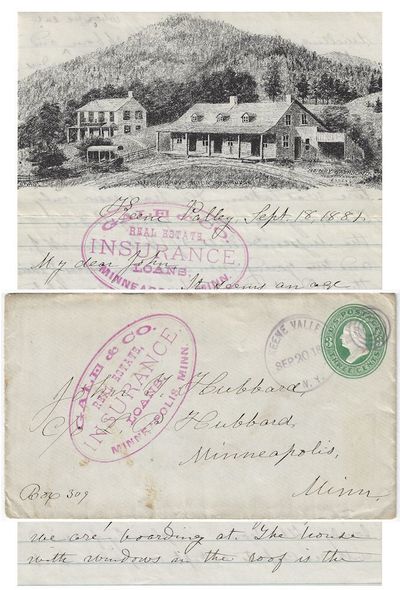 Keene Valley, Sept. 18, 1881.
GALE & CO.
REAL ESTATE,
INSURANCE,
LOANS.
MINNEAPOLIS, MINN.
My dear John,
It seems an age
GALE & CO.
REAL ESTATE,
INSURANCE,
LOANS.
MINNEAPOLIS, MINN.
KEENE VALLEY
SEP 20 18
N.Y.
U.S. POSTAGE
THREE CENTS
John Hubbard,
Hubbard,
Minneapolis,
Minn
Box 309
we are boarding at. The house
with windows in the roof is the